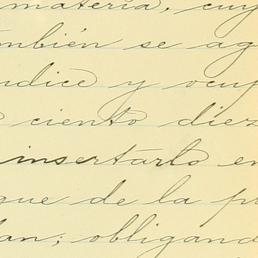 materia, cuy
mbién se ag
ndice y ocup
ciento diez
insertarlo en
que de la p
dan; obligand